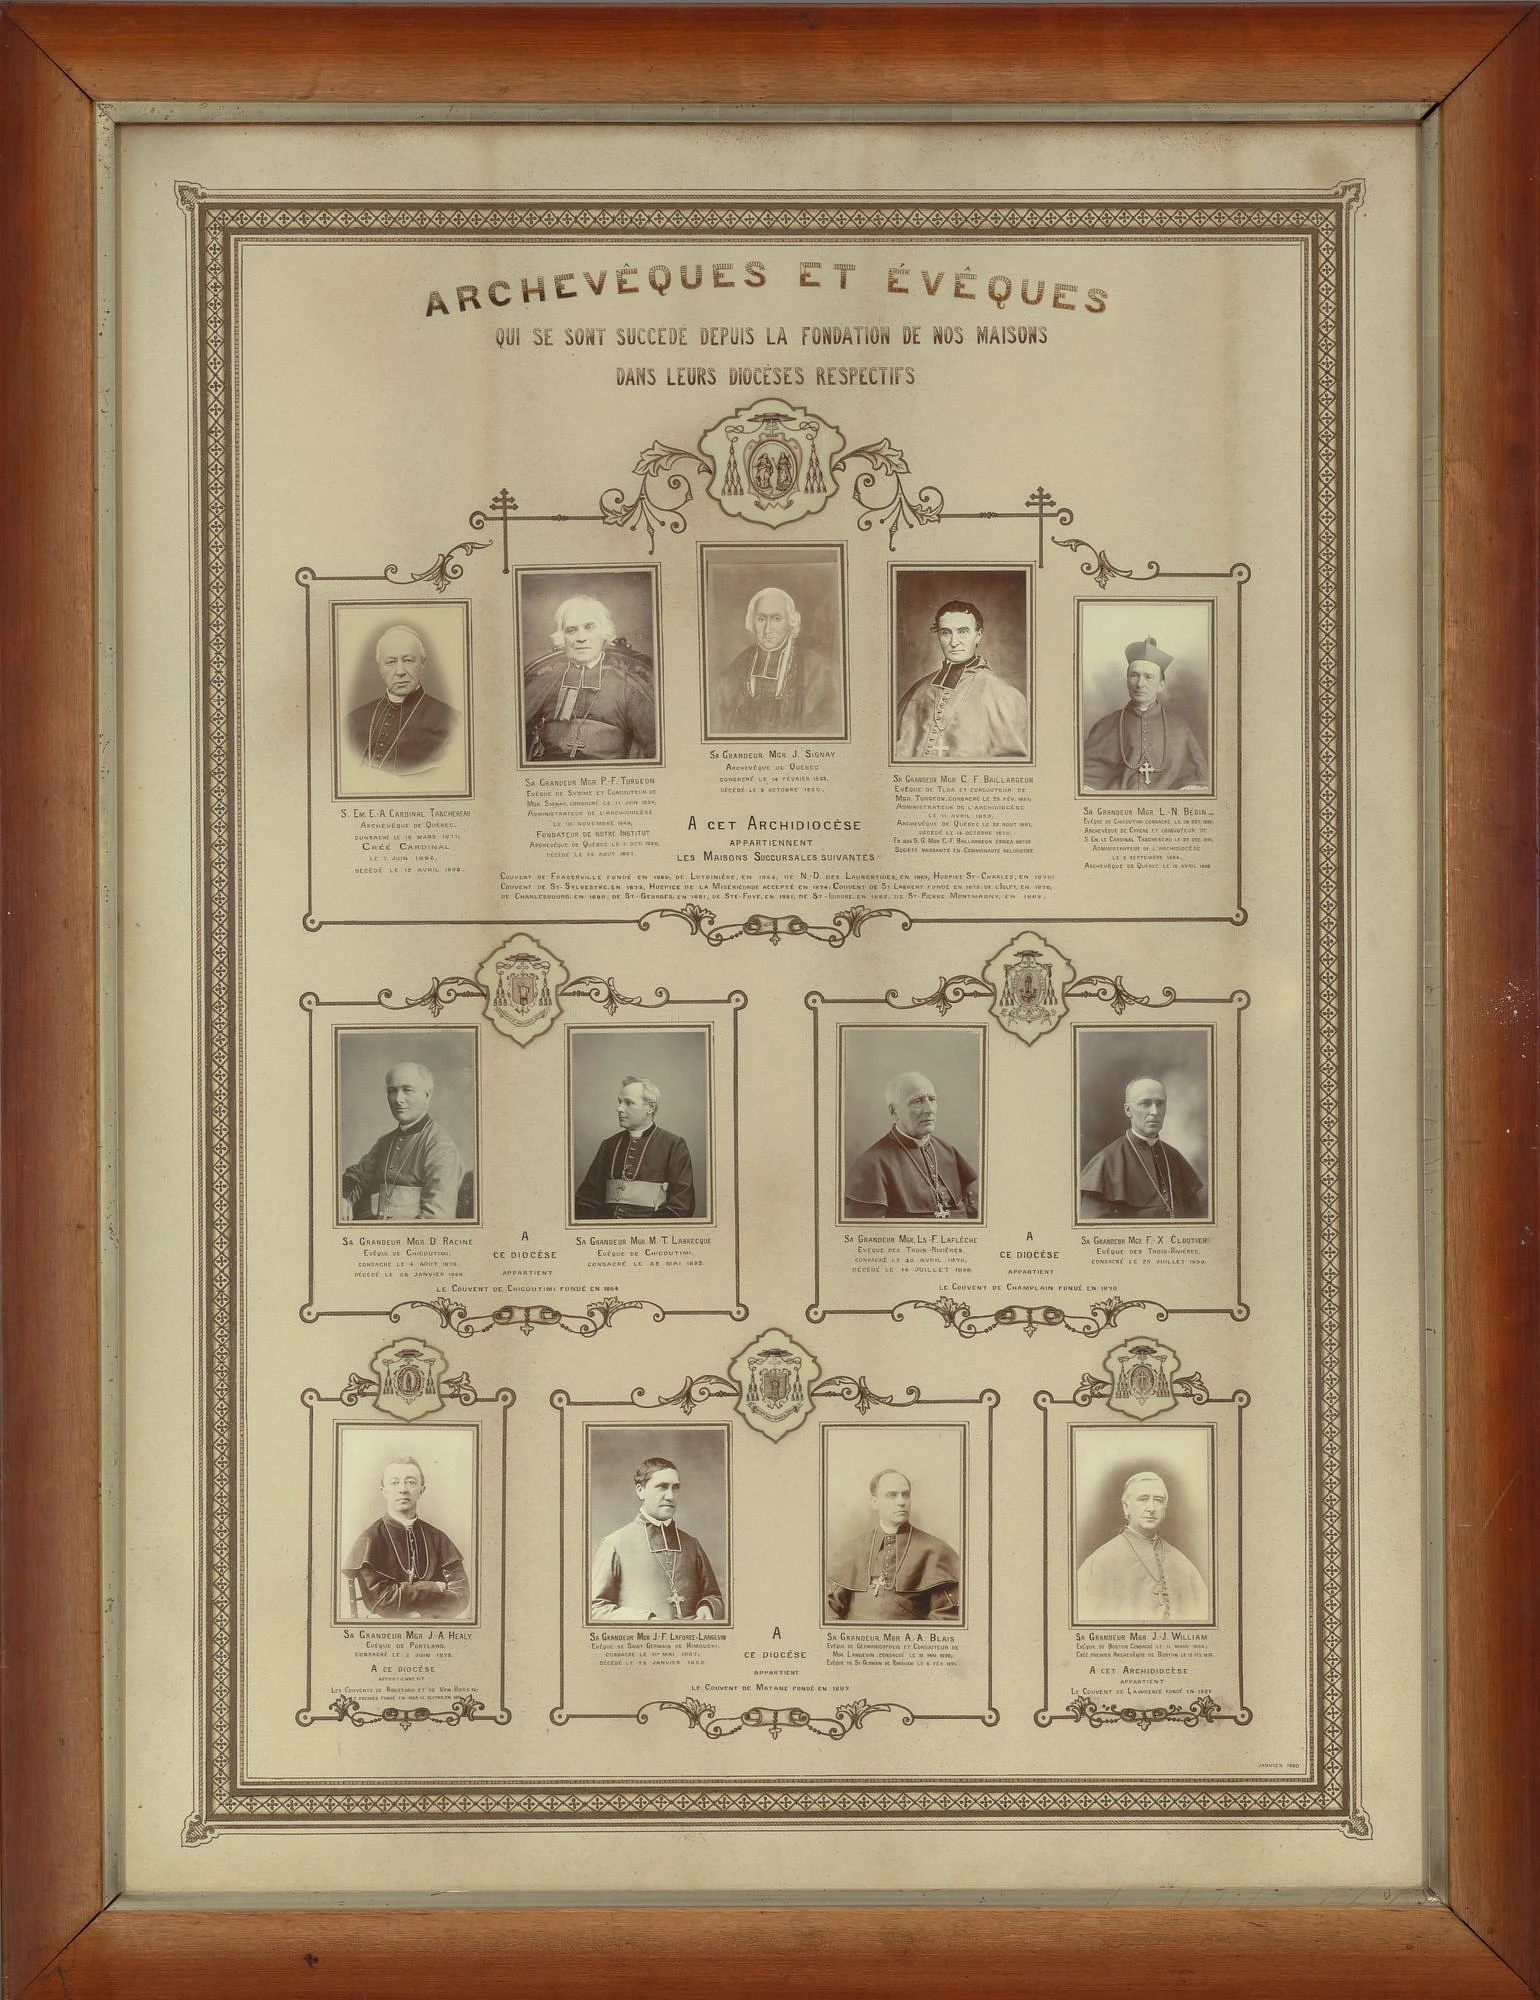 ARCHEVÊQUES ET ÉVÊQUES
QUI SE SONT SUCCÉDÉ DEPUIS LA FONDATION DE NOS MAISONS
DANS LEURS DIOCÈSES RESPECTIFS
S. EM. E.-A. CARDINAL TASCHEREAU
ARCHEVÊQUE DE QUÉBEC,
CONSACRÉ LE 19 MARS 1871,
CRÉÉ CARDINAL
LE 7 JUIN 1886,
DÉCÉDÉ LE 12 AVRIL 1898.
SA GRANDEUR MGR P.-F. TURGEON
EVÊQUE DE SYDIME ET COADJUTEUR DE
MGR SIGNAY, CONSACRÉ LE 11 JUIN 1834,
ADMINISTRATEUR DE L'ARCHIDIOCÈSE
LE 10 NOVEMBRE 1849,
FONDATEUR DE NOTRE INSTITUT
ARCHEVÊQUE DE QUÉBEC LE 3 OCT. 1850,
DÉCÉDÉ LE 25 AOUT 1867.
SA GRANDEUR MGR J. SIGNAY
ARCHEVÊQUE DE QUÉBEC
CONSACRÉ LE 14 FÉVRIER 1833,
DÉCÉDÉ LE 3 OCTOBRE 1850.
SA GRANDEUR MGR C.-F. BAILLARGEON
EVÊQUE DE TLOA ET COADJUTEUR DE
MGR. TURGEON, CONSACRÉ LE 23 FÉV. 1851,
ADMINISTRATEUR DE L'ARCHIDIOCÈSE
LE 11 AVRIL 1855,
ARCHEVÊQUE DE QUÉBEC LE 25 AOUT 1867,
DÉCÉDÉ LE 13 OCTOBRE 1870.
S. G. MGR C.-F. BAILLARGEON ÉRIGEA NOTRE
SOCIÉTÉ NAISSANTE EN COMMUNAUTÉ RELIGIEUSE
SA GRANDEUR MGR L.-N. BÉGIN
EVÊQUE DE CHICOUTIMI CONSACRÉ LE 28 OCT. 1888,
ARCHEVÊQUE DE CYRÈNE ET COADJUTEUR DE
S. EM LE CARDINAL TASCHEREAU LE 22 DÉC. 1891,
ADMINISTRATEUR DE L'ARCHIDIOCÈSE
LE 3 SEPTEMBRE 1894,
ARCHEVÊQUE DE QUÉBEC LE 12 AVRIL 1898
A CET ARCHIDIOCÈSE
APPARTIENNENT
LES MAISONS SUCCURSALES SUIVANTES
COUVENT DE FRASERVILLE FONDÉ EN 1860, DE LOTBINIÈRE, EN 1863, DE N.-D. DES LAURENTIDES, EN 1863, HOSPICE ST-CHARLES, EN 1870;
COUVENT DE ST-SYLVESTRE, EN 1873, HOSPICE DE LA MISÉRICORDE ACCEPTÉ EN 1874; COUVENT DE ST-LAURENT FONDÉ EN 1875; DE L'ISLET, EN 1876;
DE CHARLESBOURG, EN 1880; DE ST-GEORGES, EN 1881; DE STE-FOYE, EN 1881; DE ST-ISIDORE, EN 1882; DE ST-PIERRE, MONTMAGNY, EN 1889.
SA GRANDEUR MGR D. RACINE
EVÊQUE DE CHICOUTIMI,
CONSACRÉ LE 4 AOUT 1878,
DÉCÉDÉ LE 28 JANVIER 1888.
A
CE DIOCÈSE
APPARTIENT
SA GRANDEUR MGR M.-T. LABRECQUE
EVÊQUE DE CHICOUTIMI,
CONSACRÉ LE 22 MAI 1892.
LE COUVENT DE CHICOUTIMI FONDÉ EN 1864
SA GRANDEUR MGR LS.-F. LAFLÈCHE
EVÊQUE DES TROIS-RIVIÈRES,
CONSACRÉ LE 30 AVRIL 1870,
DÉCÉDÉ LE 14 JUILLET 1898.
A
CE DIOCÈSE
APPARTIENT
SA GRANDEUR MGR F.-X. CLOUTIER
EVÊQUE DES TROIS-RIVIÈRES,
CONSACRÉ LE 25 JUILLET 1899.
LE COUVENT DE CHAMPLAIN FONDÉ EN 1870
SA GRANDEUR MGR J.-A. HEALY
EVÊQUE DE PORTLAND,
CONSACRÉ LE 2 JUIN 1875.
A CE DIOCÈSE
APPARTIENNENT
LES COUVENTS DE ET DE VAN-BUREN;
SA GRANDEUR MGR J.-F. LAFORCE-LANGEVIN
EVÊQUE DE SAINT GERMAIN DE RIMOUSKI,
CONSACRÉ LE 1ER MAI 1867;
DÉCÉDÉ LE 26 JANVIER 1892.
A
CE DIOCÈSE
APPARTIENT
SA GRANDEUR MGR A.-A. BLAIS
EVÊQUE DE GERMANICOPOLIS ET COADJUTEUR DE
MGR LANGEVIN CONSACRÉ LE 18 MAI 1890;
EVÊQUE DE ST-GERMAIN DE RIMOUSKI LE 6 FÉV. 1891.
LE COUVENT DE MATANE FONDÉ EN
SA GRANDEUR MGR J.-J. WILLIAM
EVÊQUE DE BOSTON CONSACRÉ LE 11 MARS 1866;
CRÉÉ PREMIER ARCHEVÊQUE DE BOSTON LE 12 FÉV 1875.
A CET ARCHIDIOCÈSE
APPARTIENT
LE COUVENT DE LAWRENCE FONDÉ EN
JANVIER 1900